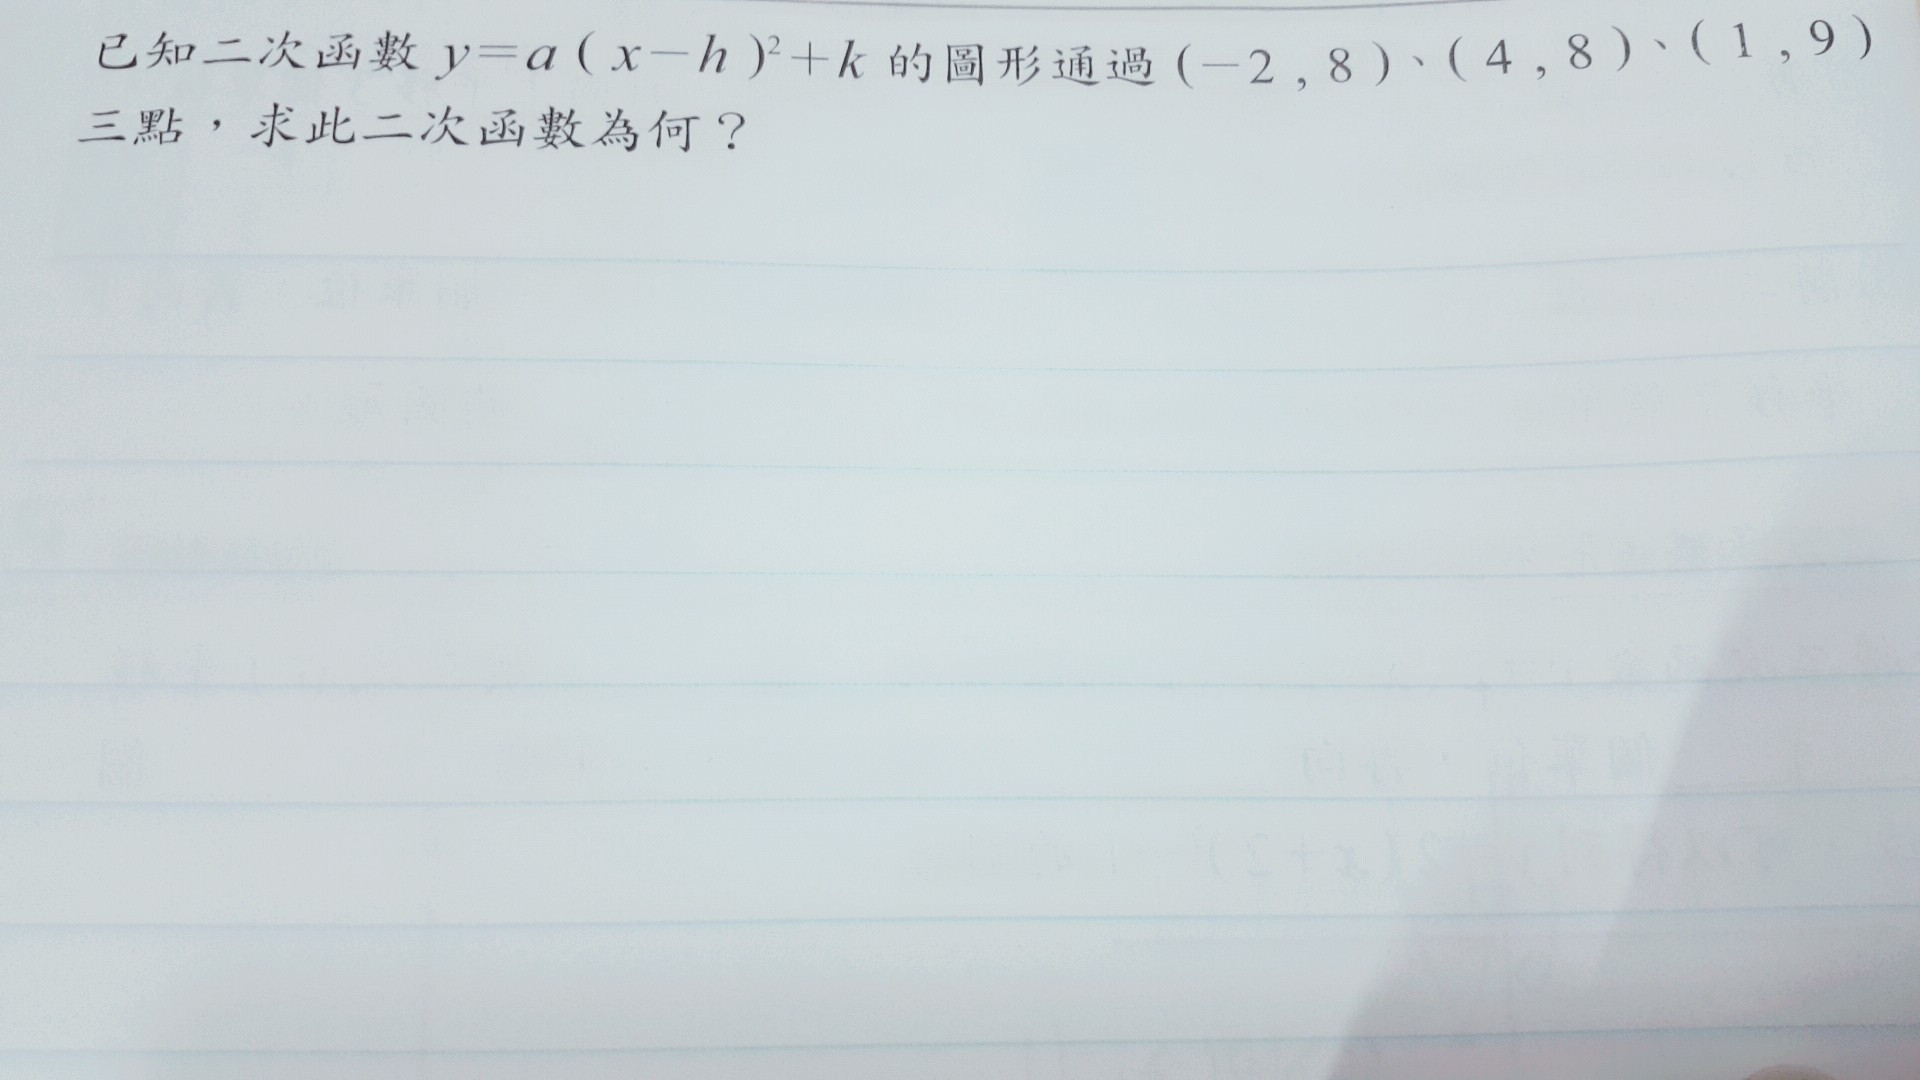 已知二次函數 y=a(x-h)²+k 的圖形通過(-2,8)、(4,8)、(1,9)
三點，求此二次函數為何？